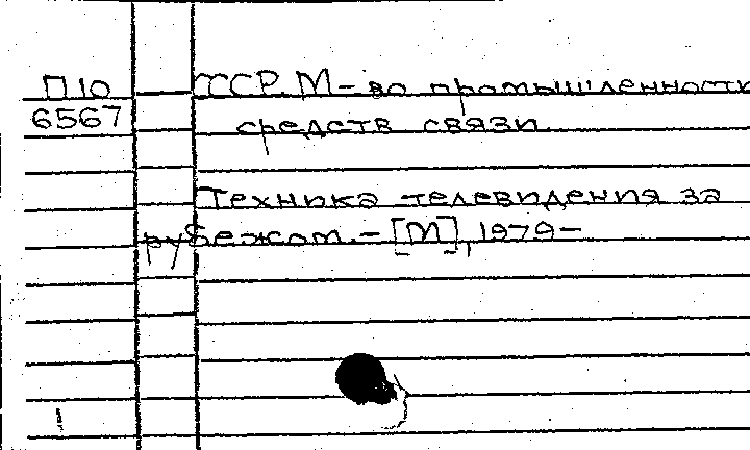 П10
6567
СССР. М-во промышленности
средств связи.
Техника телевидения за
рубежом. - [М], 1979-